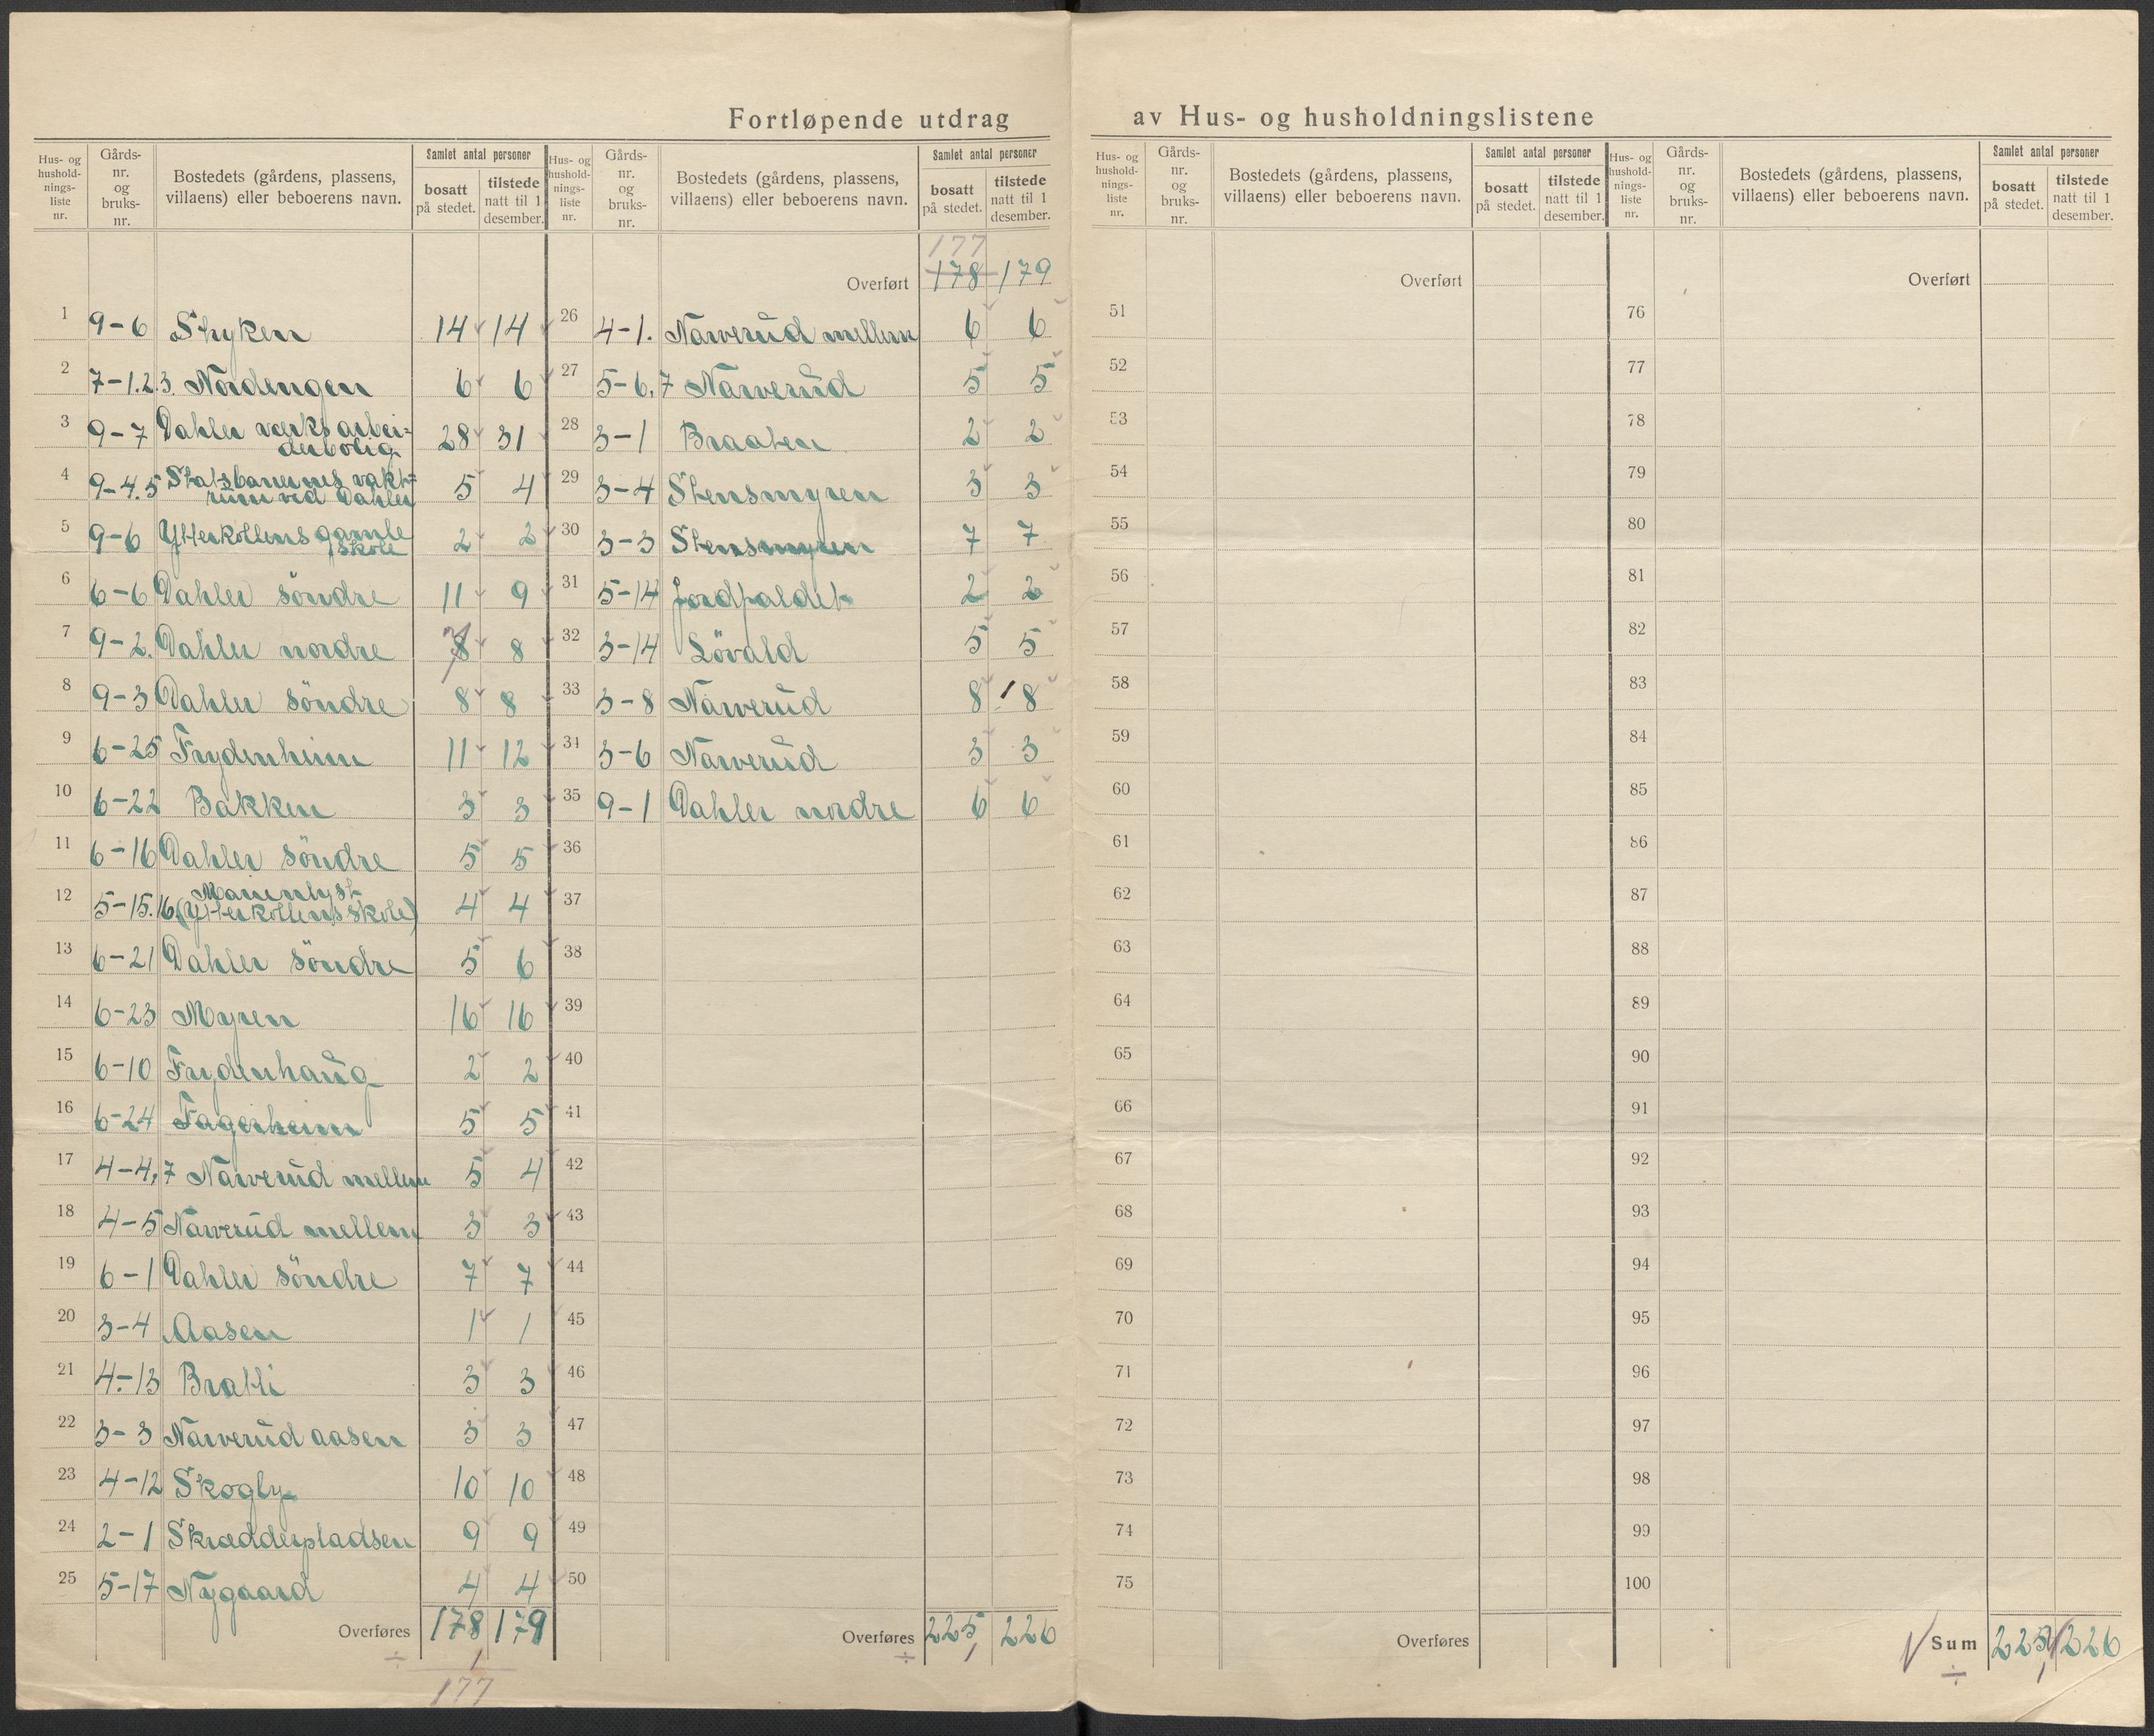 Fortløpende utdrag av Hus- og husholdningslistene
Hus- og husholdnings- liste nr. | Gårds- nr. og bruks- nr. | Bostedets (gårdens, plassens, villaens) eller beboerens navn. | Samlet antal personer | bosatt på stedet. | tilstede natt til 1 desember.
1 9-6 Stryken 14 14
2 7-1.2.3. Nordengen 6 6
3 9-7 Dahler værks arbeiderbolig 28 31
4 9-4.5 Statsbanernes vaktrum ved Dahler 5 4
5 9-6 Ytterkollens gamle skole 2 2
6 6-6 Dahler söndre 11 9
7 9-2. Dahler nordre 8 7 8
8 9-3 Dahler söndre 8 8
9 6-25 Frydenheim 11 12
10 6-22 Bakken 3 3
11 6-16 Dahler söndre 5 5
12 5-15.16 Marienlyst (Ytterkollens skole) 4 4
13 6-21 Dahler söndre 5 6
14 6-23 Myren 16 16
15 6-10 Frydenhaug 2 2
16 6-24 Fagerheim 5 5
17 4-4,7 Narverud mellem 5 4
18 4-5 Narverud mellem 3 3
19 6-1 Dahler söndre 7 7
20 3-4 Aasen 1 1
21 4-13 Bratli 3 3
22 3-3 Narverud aasen 3 3
23 4-12 Skogly 10 10
24 2-1 Skrædderpladsen 9 9
25 5-17 Nygaard 4 4
Overføres 178 179
÷ 1
177
Hus- og husholdnings- liste nr. | Gårds- nr. og bruks- nr. | Bostedets (gårdens, plassens, villaens) eller beboerens navn. | Samlet antal personer | bosatt på stedet. | tilstede natt til 1 desember.
177
Overført 178 179
26 4-1. Narverud mellem 6 6
27 5-6,7 Narverud 5 5
28 3-1 Braaten 2 2
29 3-4 Stensmyren 3 3
30 3-3 Stensmyren 7 7
31 5-14 Jordfaldet 2 2
32 3-14 Lövald 5 5
33 3-8 Narverud 8 8
34 3-6 Narverud 3 3
35 9-1 Dahler nordre 6 6
36
37
38
39
40
41
42
43
44
45
46
47
48
49
50
Overføres 225 226
÷ 1
Hus- og husholdnings- liste nr. | Gårds- nr. og bruks- nr. | Bostedets (gårdens, plassens, villaens) eller beboerens navn. | Samlet antal personer | bosatt på stedet. | tilstede natt til 1 desember.
Overført
51
52
53
54
55
56
57
58
59
60
61
62
63
64
65
66
67
68
69
70
71
72
73
74
75
Overføres
Hus- og husholdnings- liste nr. | Gårds- nr. og bruks- nr. | Bostedets (gårdens, plassens, villaens) eller beboerens navn. | Samlet antal personer | bosatt på stedet. | tilstede natt til 1 desember.
Overført
76
77
78
79
80
81
82
83
84
85
86
87
88
89
90
91
92
93
94
95
96
97
98
99
100
Sum 225 226
÷ 1